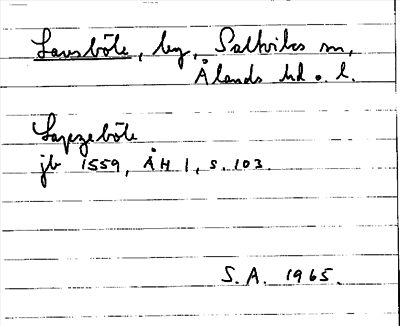 Lavsböle, by, Saltviks sn,
Ålands hd o. l.
Lapzeböle
jb 1559, ÅH 1, s. 103.
S.A. 1965.